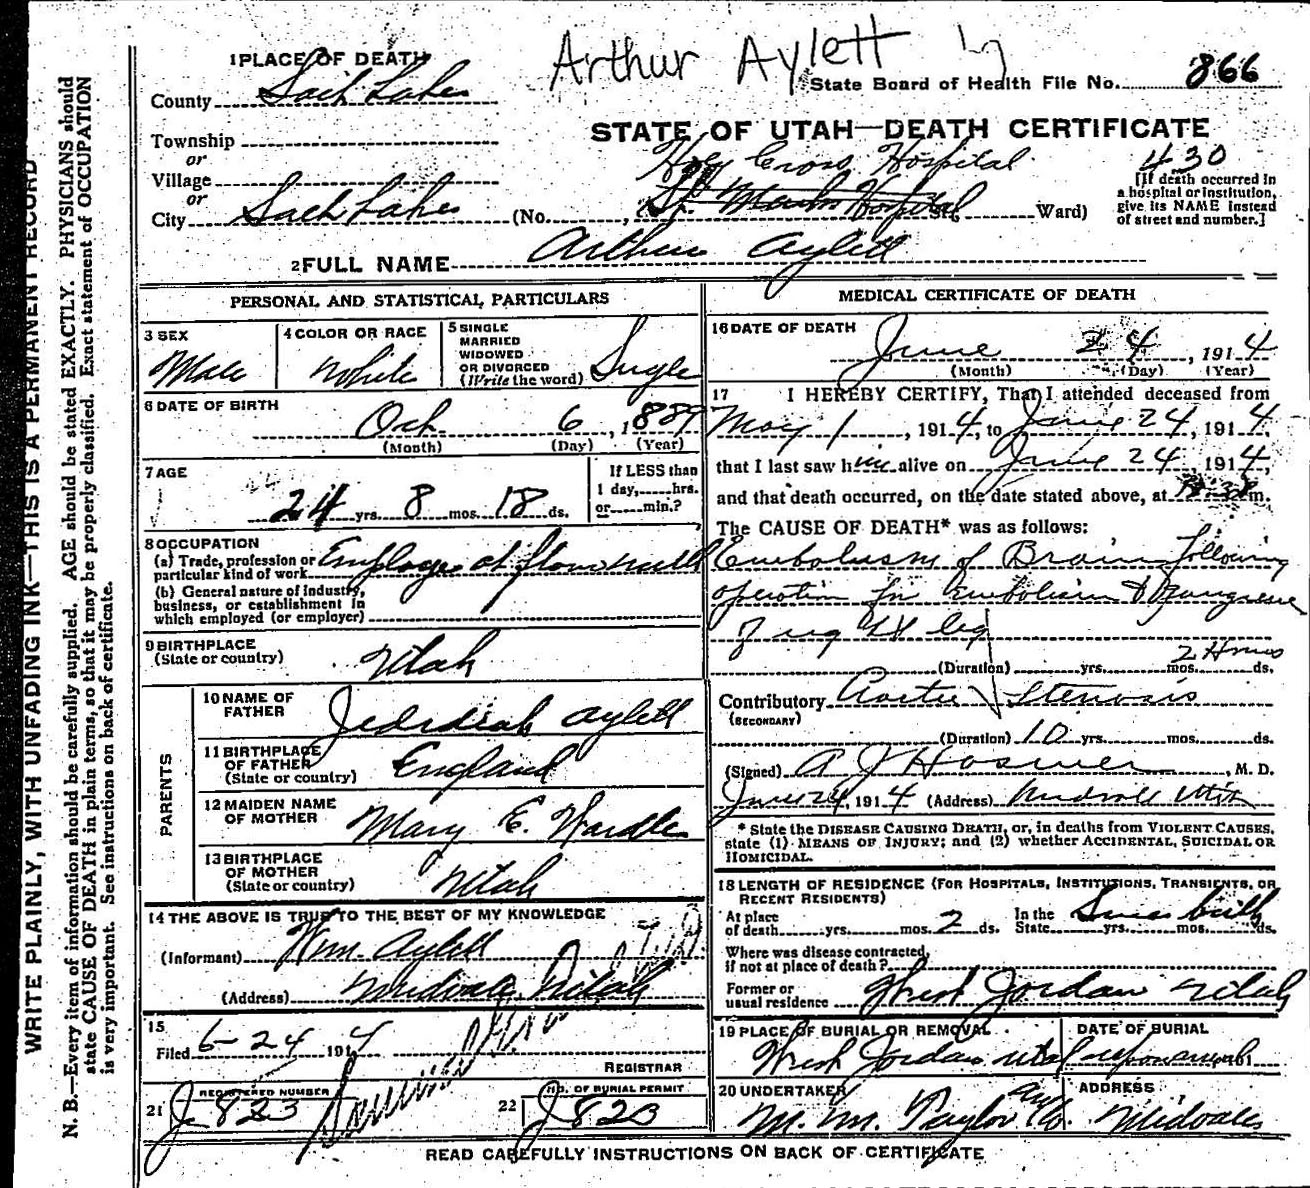 Arthur Aylett
1 PLACE OF DEATH
State Board of Health File No. 866
County Salt Lake
STATE OF UTAH—DEATH CERTIFICATE
Township
or
Village
or
City Salt Lake
Holy Cross Hospital
430
(No. , St. Marks Hospital Ward)
[If death occurred in
a hospital or institution,
give its NAME instead
of street and number.]
2 FULL NAME Arthur Aylett
PERSONAL AND STATISTICAL PARTICULARS
3 SEX
Male
4 COLOR OR RACE
White
5 SINGLE
MARRIED
WIDOWED
OR DIVORCED
(Write the word) Single
6 DATE OF BIRTH
Oct. 6, 1889
(Month) (Day) (Year)
7 AGE
24 yrs. 8 mos. 18 ds.
If LESS than
1 day, hrs.
or min.?
8 OCCUPATION
(a) Trade, profession or
particular kind of work Employe at flour mill
(b) General nature of Industry,
business, or establishment in
which employed (or employer)
9 BIRTHPLACE
(State or country) Utah
PARENTS
10 NAME OF
FATHER Jedediah Aylett
11 BIRTHPLACE
OF FATHER
(State or country) England
12 MAIDEN NAME
OF MOTHER Mary E. Wardle
13 BIRTHPLACE
OF MOTHER
(State or country) Utah
14 THE ABOVE IS TRUE TO THE BEST OF MY KNOWLEDGE
(Informant) Wm. Aylett
(Address) Midvale, Utah
15
Filed 6-24 1914
REGISTRAR
21 REGISTERED NUMBER
J 823
22 NO. OF BURIAL PERMIT
J 823
MEDICAL CERTIFICATE OF DEATH
16 DATE OF DEATH
June 24, 1914
(Month) (Day) (Year)
17 I HEREBY CERTIFY, That I attended deceased from
May 1, 1914, to June 24, 1914,
that I last saw him alive on June 24, 1914,
and that death occurred, on the date stated above, at m.
The CAUSE OF DEATH* was as follows:
Embolism of Brain following
operation for Embolism & Gangrene
of leg
(Duration) yrs. mos. 2 Hours ds.
Contributory Aortic Stenosis
(SECONDARY)
(Duration) 10 yrs. mos. ds.
(Signed) A J Hosmer, M. D.
June 24, 1914 (Address) Midvale Utah
* State the DISEASE CAUSING DEATH, or, in deaths from VIOLENT CAUSES,
state (1) MEANS OF INJURY; and (2) whether ACCIDENTAL, SUICIDAL OR
HOMICIDAL.
18 LENGTH OF RESIDENCE (FOR HOSPITALS, INSTITUTIONS, TRANSIENTS, OR
RECENT RESIDENTS)
At place
of death yrs. mos. 2 ds.
In the
State Since birth yrs. mos. ds.
Where was disease contracted,
if not at place of death?
Former or
usual residence West Jordan Utah
19 PLACE OF BURIAL OR REMOVAL
West Jordan Utah
DATE OF BURIAL
191
20 UNDERTAKER
M. M. Taylor Co.
ADDRESS
Midvale
READ CAREFULLY INSTRUCTIONS ON BACK OF CERTIFICATE
WRITE PLAINLY, WITH UNFADING INK—THIS IS A PERMANENT RECORD
N. B.—Every item of information should be carefully supplied. AGE should be stated EXACTLY. PHYSICIANS should
state CAUSE OF DEATH in plain terms, so that it may be properly classified. Exact statement of OCCUPATION
is very important. See instructions on back of certificate.